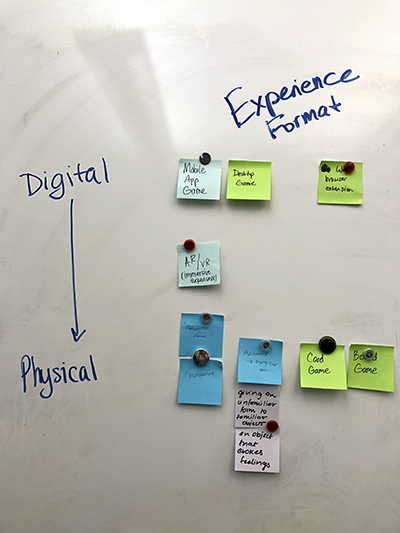 Experience
Format
Digital
Mobile
App
Game
Desktop
Game
browser
extension
AR/VR
(immersive
experience)
Physical
Card
Game
Board
Game
giving an
unfamiliar
form to
familiar
object
an object
that
evokes
feelings